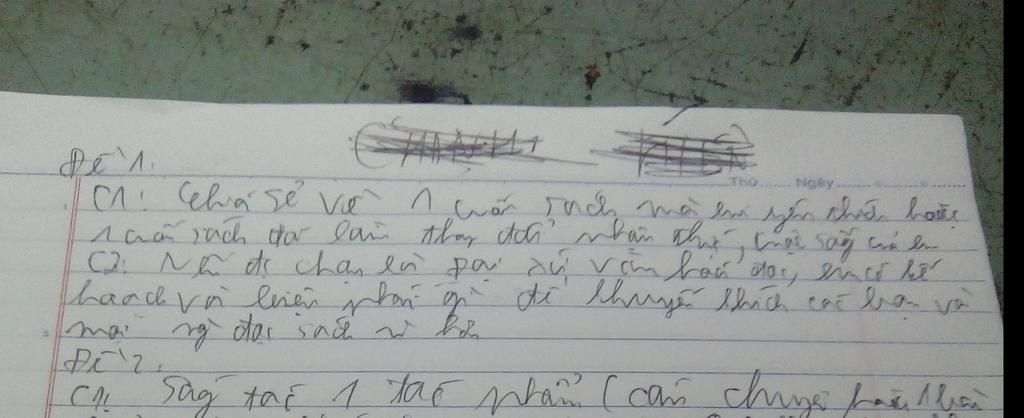 Đề 1.
Thứ ...... Ngày ......
C1: Chia sẻ về 1 cuốn sách mà em yêu thích hoặc
1 cuốn sách đã làm thay đổi nhận thức, cuộc sống của em
C2: Nếu đc chọn là Đại sứ văn hoá đọc, em có kế
hoạch và biện pháp gì để khuyến khích các bạn và
mọi ng đọc sách
Đề 2.
C1: Sáng tác 1 tác phẩm (câu chuyện hoặc